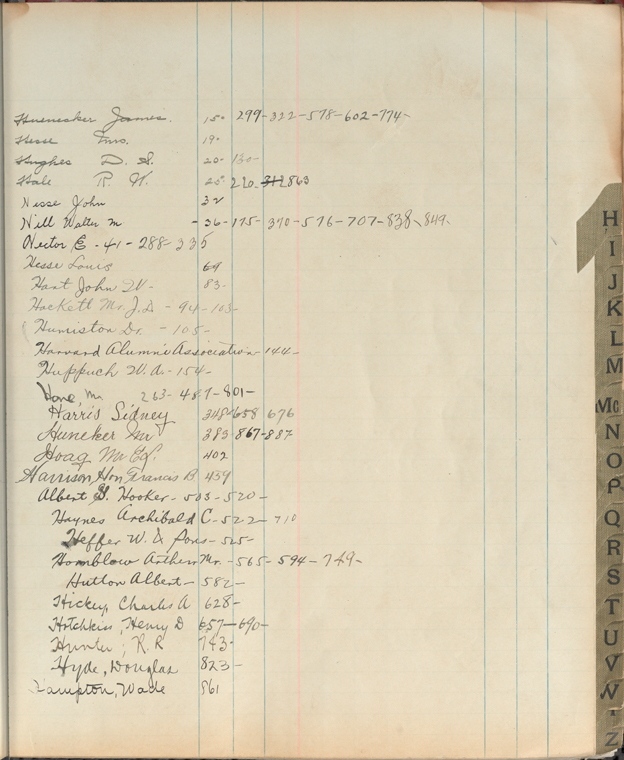 Huenecker James. 15- 299-322-578-602-774-
Hesse Mrs. 19-
Hughes D. S. 20- 130-
Hale R. W. 20- 210- 863
Hesse John 32
Hill Walter M -36-175-370-576-707-838-849-
Hector E - 41 - 288-335
Hesse Louis 69
Hart John W- 83-
Hackett Mr. J. D - 94-103-
Humiston Dr. - 105-
Harvard Alumni Association- 144-
Huppuch W. A. - 154-
Hone, Mr 263-487-801-
Harris Sidney 348-658 676
Huneker Mr 383-867-887
Hoag Mr 402
Harrison, Hon. Francis B 439
Albert G. Hooker - 503-520-
Haynes Archibald C- 522-710
Heffer W. & Sons- 525-
Hornblow Arthur Mr. - 565-594-749-
Hutton Albert- 582-
Hickey, Charles A 628-
Hotchkiss, Henry D 657-690-
Hunter, R. R 743-
Hyde, Douglas 823-
Hampton, Wade 861
H
I
J
K
L
M
Mc
N
O
P
Q
R
S
T
U
V
W
Y
Z